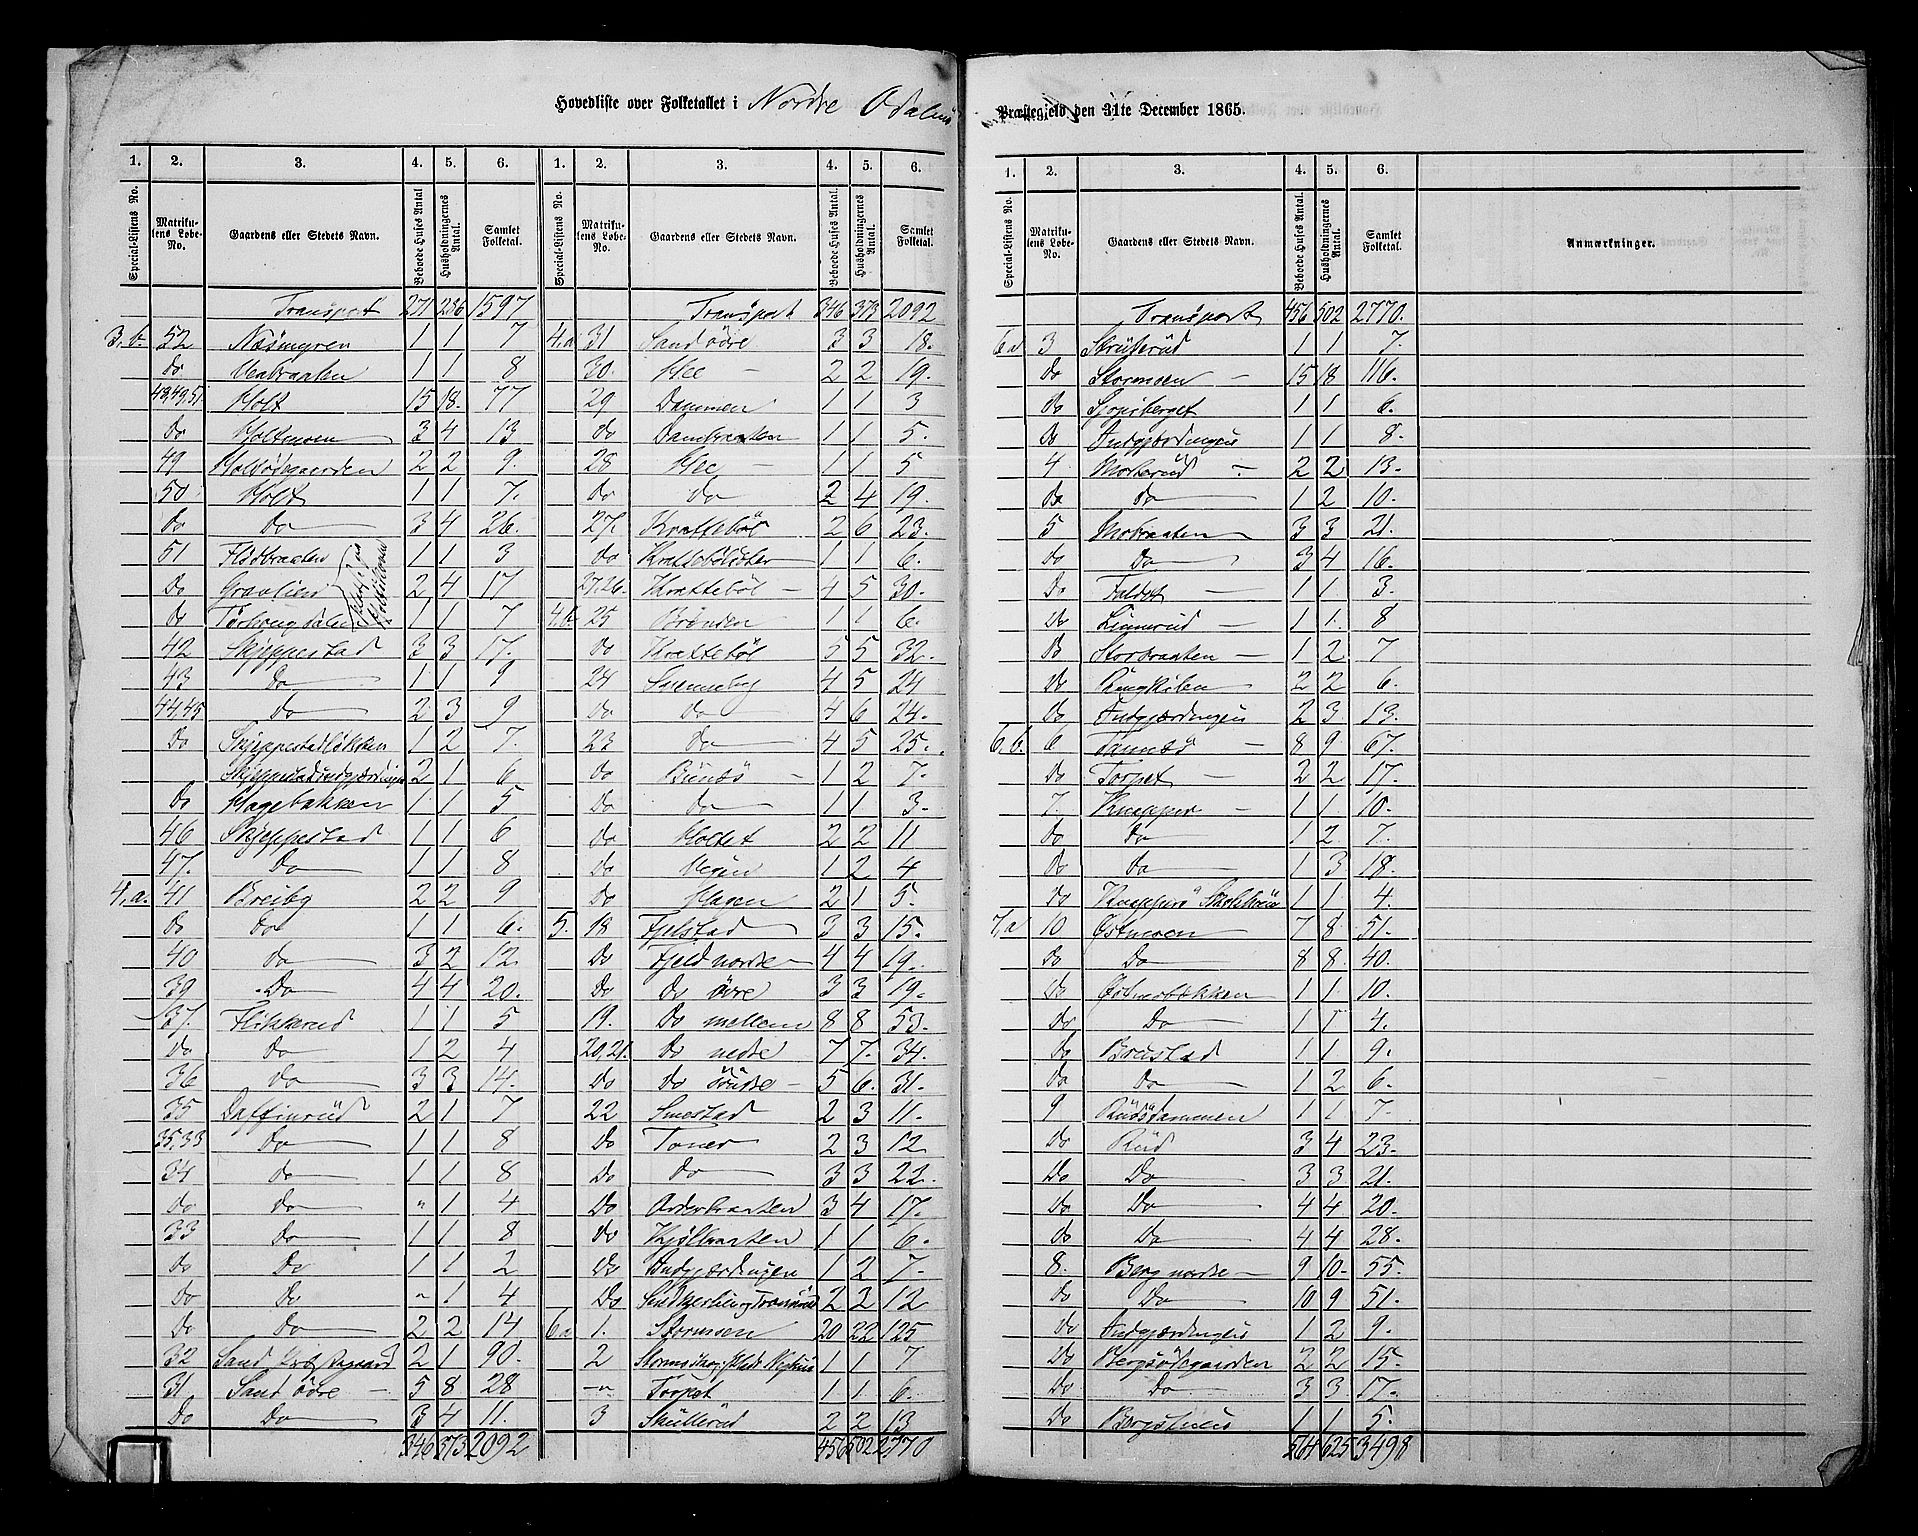 Hovedliste over Folketallet i Nordre Odalens Præstegjeld den 31te December 1865.
1. 2. 3. 4. 5. 6.
Special-Listens No. Matrikulens Løbe-No. Gaardens eller Stedets Navn. Beboede Huses Antal Husholdningernes Antal. Samlet Folketal.
Transport 271 286 1597
3,b. 52 Næsmyren 1 1 7
do 1 1 8
Holt 15 18. 77
do Holtmoen 3 4 13
49 2 2 9.
50 Holt 1 1 7.
do do 3 4 26.
51 Flodbraaten 1 1 3
do Gravlien 2 4 17
do 1 1 7
42 Skjeppestad 3 3 17.
43 do 1 1 9
44,45 do 2 3 9
do Skjeppestadløkken 1 2 7.
2 1 6
do Hagebakken 1 1 5
46 Skjeppestad 1 1 6
47. do 1 1 8
4,a. 41 Breiby 2 2 9
do do 1 1 6.
40 do 3 2 12
39 Do 4 4 20.
37. Flikkerud 1 1 5
do do 1 2 4
36 do 3 3 14.
35 Daffinrud 2 1 7
35,33 do 1 1 8
34 do 1 1 8
do do " 1 4
33 do 1 1 8
do do 1 1 2
do do " 1 4
do do 2 2 14
32 Sand Præstegaard 2 1 90.
31 Sand övre 5 8 28
do do 3 4 11.
346 373 2092
1. 2. 3. 4. 5. 6.
Special-Listens No. Matrikulens Løbe-No. Gaardens eller Stedets Navn. Beboede Huses Antal. Husholdningernes Antal. Samlet Folketal.
Transport 346 373 2092
4,a 31 Sand övre 3 3 18.
30. 2 2 19.
29 Dammen 1 1 3
do Dambraaten 1 1 5.
28 1 1 5
do do 2 4 19.
27. Krattebøl 2 6 23.
do 1 1 6.
27,26. Krattebøl 4 5 30.
4,b. 25 Brønden 1 1 6.
do Krattebøl 5 5 32.
24 Svenneby 4 5 24
do do 4 6 24.
23 do 4 5 25.
do Bünæs 1 2 7.
do do 1 1 3.
do Holtet 2 2 11
do 1 2 4
do Hagen 2 1 5.
5. 18 Fjelstad 3 3 15.
do Fjeld nordre 4 4 19.
do do övre 3 3 19.
19. do mellem 8 8 53.
20,21. do nedre 7 7. 34.
do do söndre 5 6. 31.
22 Smestad 2 3 11.
do Toner 2 3 12
do do 3 3 22.
do 3 4 17.
do 1 1 6.
do Indgjærdingen 1 2 7.
do 2 2 12
6a 1. Stormoen 20 22 125
2 1 1 7
-"- Torpet 1 1 6.
3 Skullerud 2 2 13
456 502 2770
1. 2. 3. 4. 5. 6.
Special-Listens No. Matrikulens Løbe-No. Gaardens eller Stedets Navn. Beboede Huses Antal. Husholdningernes Antal. Samlet Folketal. Anmærkninger.
Transport 456 502 2770.
6a 3 1 1 7.
do Stormoen 15 18 116.
do 1 1 6.
do Indgjærdingen 1 1 8.
4. Morterud 2 2 13.
do do 1 2 10.
5 Mobraaten 3 3 21.
do do 3 4 16.
do Faldet 1 1 3.
do Linnerud 1 1 8
do Storbraaten 1 2 7
do 2 2 6.
do Indgjærdingen 2 3 13.
6,b. 6 Tannæs 8 9 67.
do Torpet 2 2 17.
7. Knapper 1 1 10.
do do 1 2 7.
do do 1 3 18.
do 1 1 4.
7,a 10 Østmoen 7 8 51.
do do 8 8 40.
do Østmobakken 1 1 10.
do do 1 1 4.
do Brustad 1 1 9.
do do 1 2 6.
9 Rüdsdammen 1 1 7.
do Rüd 3 4 23.
do do 3 3 21.
do do 4 4 20.
do do 4 4 28.
8. Berg nordre 9 10 55.
do do 10 9 51.
do Indgjærdingen 1 2 9.
do Bergsødegaarden 2 2 15.
do do 3 3 17.
do 1 1 5.
564 625 3498